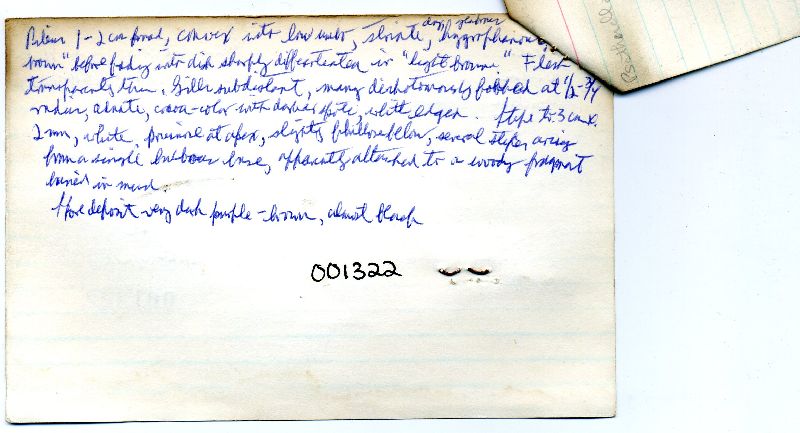 Pileus 1-2 cm broad, convex into low umbo, striate, dry, glabrous hygrophanous
brown" before fading into disk sharply differentiated in "light brown" Flesh
transparently thin. Gills subdistant, many dichotomously forked at 1/2-3/4
radius, adnate, cocoa-color with darker spots, white edged. Stipe to 3 cm x
2 mm, white, pruinose at apex, slightly fibrillose below, several stipes arising
from a single bulbous base, apparently attached to a woody fragment
buried in mud.
Spore deposit very dark purple-brown, almost black
001322